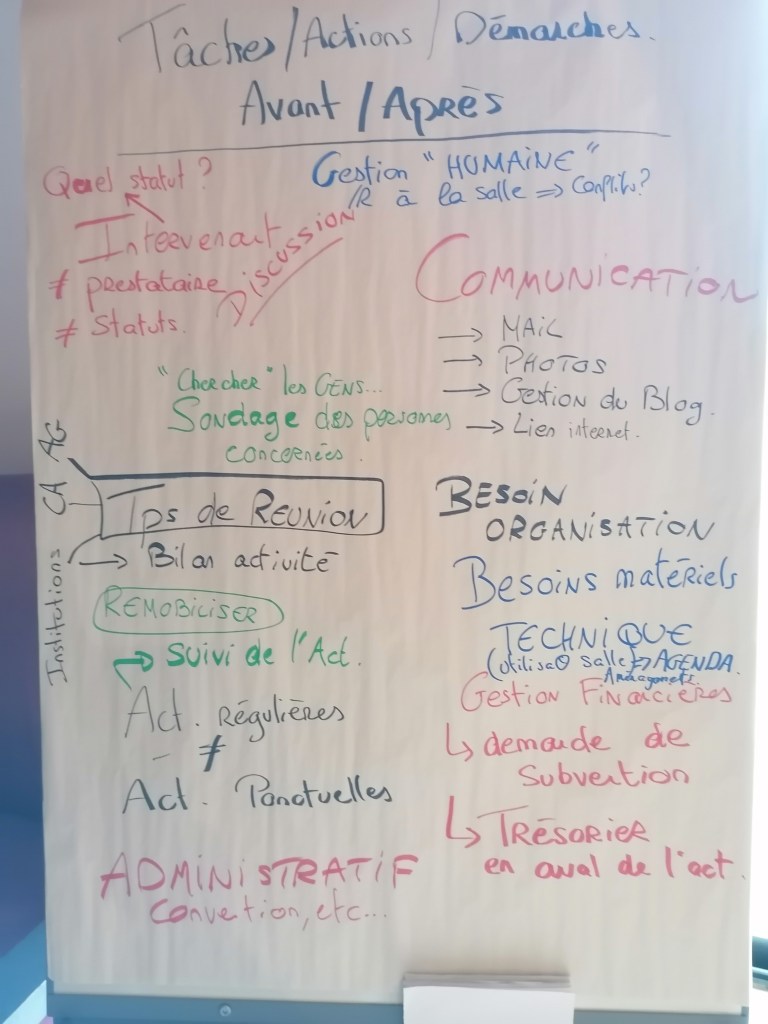 Tâches/Actions/Démarches.
Avant/Après
Quel statut ?
Intervenant
≠ prestataire
≠ Statuts.
Discussion
Gestion "HUMAINE"
/R à la salle => Conflits?
COMMUNICATION
→ MAIL
→ PHOTOS
→ Gestion du Blog.
→ Lien internet.
"Chercher" les GENS...
Sondage des personnes
concernées.
AG
CA
Institutions
Tps de REUNION
→ Bilan activité
REMOBILISER
→ Suivi de l'Act.
Act. Régulières
≠
Act. Ponctuelles
ADMINISTRATIF
Convention, etc...
BESOIN
ORGANISATION
Besoins matériels
TECHNIQUE
(utilisaO salle) => AGENDA.
Gestion Financières
↳ demande de
Subvention
↳ TRÉSORIER
en aval de l'act.